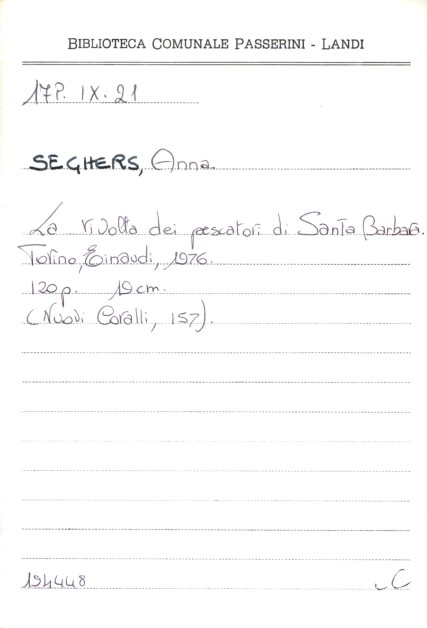 BIBLIOTECA COMUNALE PASSERINI - LANDI
17P. IX. 21
SEGHERS, Anna.
La rivolta dei pescatori di Santa Barbara.
Torino, Einaudi, 1976.
120 p. 19 cm.
(Nuovi Coralli, 157).
194448 C